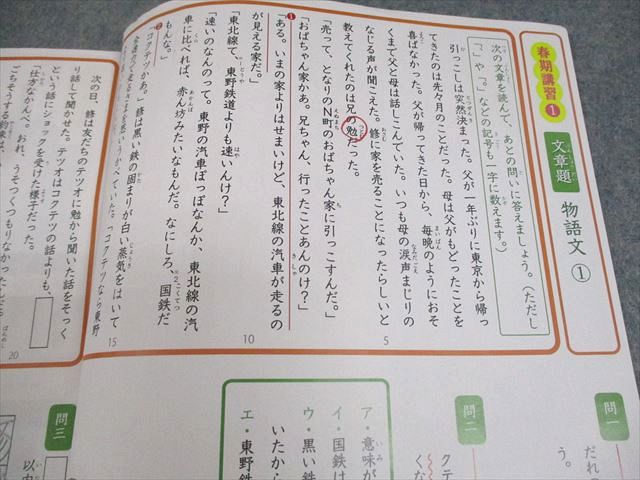 春期講習①
文章題
物語文①
次の文章を読んで、あとの問いに答えましょう。（ただし
「」や『』などの記号も一字に数えます。）
引っこしは突然決まった。父が一年ぶりに東京から帰っ
てきたのは先々月のことだった。母は父がもどったことを
喜ばなかった。父が帰ってきた日から、毎晩のようにおそ
くまで父と母は話しこんでいた。いつも母の涙声まじりの
なじる声が聞こえた。修に家を売ることになったらしいと
教えてくれたのは兄の勉だった。
「売って、となりのN町のおばちゃん家に引っこすんだ。」
「おばちゃん家かあ。兄ちゃん、行ったことあんのけ？」
❶「ある。いまの家よりはせまいけど、東北線の汽車が走るの
が見える家だ。」
「東北線て、東野鉄道よりも速いんけ？」
「速いのなんのって。東野の汽車ぽっぽなんか、東北線の汽
車に比べれば、赤ん坊みたいなもんだ。なにしろ、国鉄だ
もんな。」
❷「コクテツかあ。」修は黒い鉄の固まりが白い蒸気をはいて
「コクテツなら東野
次の日、修は友だちのテツオに勉から聞いた話をそっく
り話して聞かせた。テツオはコクテツの話よりも、
という話にショックを受けた様子だった。
「仕方なかんべ。おれ、うそつくつもりなかった
ごちそうする約束は、
5
10
15
20
問一
だれ
う。
問二
クテ
くな
ア・意味が
いたから
イ・国鉄は
ウ・黒い鉄
エ・東野鉄
問三
以内